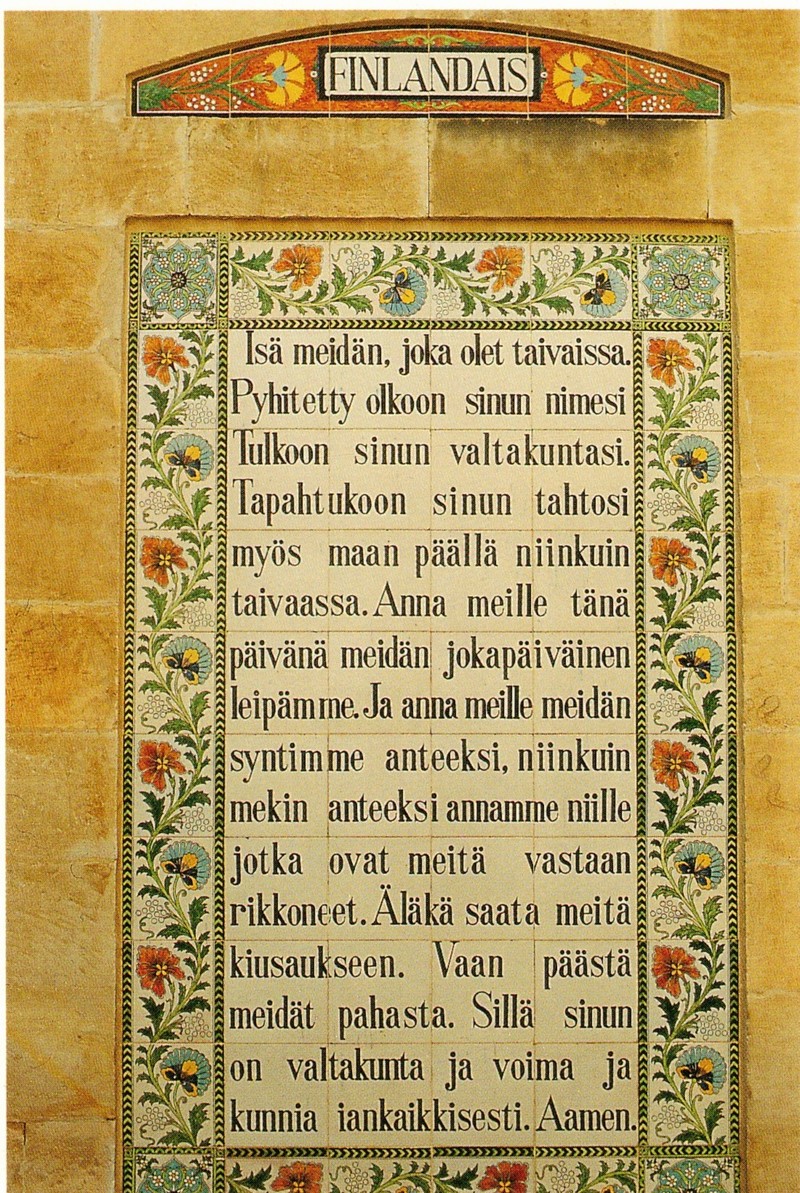 FINLANDAIS
Isä meidän, joka olet taivaissa.
Pyhitetty olkoon sinun nimesi
Tulkoon sinun valtakuntasi.
Tapahtukoon sinun tahtosi
myös maan päällä niinkuin
taivaassa. Anna meille tänä
päivänä meidän jokapäiväinen
leipämme. Ja anna meille meidän
syntimme anteeksi, niinkuin
mekin anteeksi annamme niille
jotka ovat meitä vastaan
rikkoneet. Äläkä saata meitä
kiusaukseen. Vaan päästä
meidät pahasta. Sillä sinun
on valtakunta ja voima ja
kunnia iankaikkisesti. Aamen.